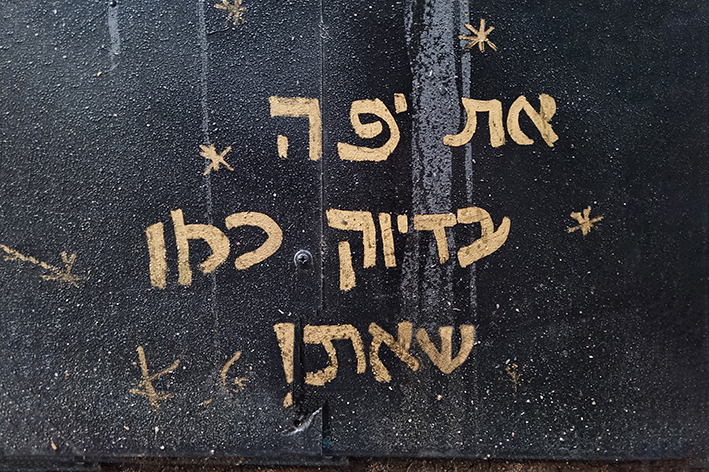 את יפה
בדיוק כמו
שאת!